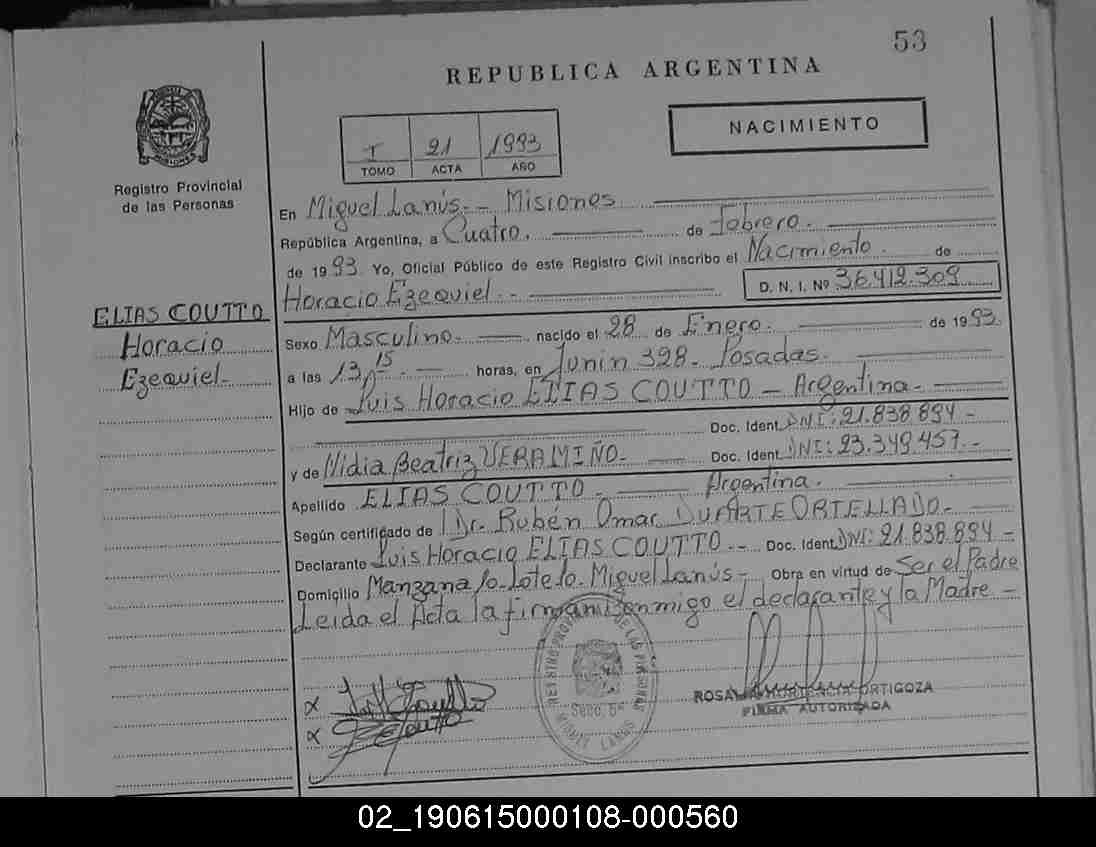 53
REPUBLICA ARGENTINA
NACIMIENTO
I 21 1993
TOMO ACTA AÑO
Registro Provincial
de las Personas
ELIAS COUTTO
Horacio
Ezequiel.-
En Miguel Lanús.- - Misiones
República Argentina, a Cuatro. de Febrero.-
de 1993. Yo, Oficial Público de este Registro Civil inscribo el Nacimiento. de
Horacio Ezequiel.- - D. N. I. Nº 36.412.309
Sexo Masculino.- nacido el 28 de Enero.- de 1993.
a las 13,15.- horas, en Junin 328.- Posadas.-
Hijo de Luis Horacio ELIAS COUTTO - Argentina.-
Doc. Ident. DNI: 21.838.894 -
y de Nidia Beatriz VERA MIÑO.- Doc. Ident. DNI: 23.349.457.-
Apellido ELIAS COUTTO - Argentina.
Según certificado de Dr. Rubén Omar DUARTE ORTELLADO.-
Declarante Luis Horacio ELIAS COUTTO.-- Doc. Ident. DNI: 21.838.894 -
Domicilio Manzana Lote Miguel Lanús - Obra en virtud de Ser el Padre
Leida el Acta la firman conmigo el declarante y la Madre -
REGISTRO PROVINCIAL DE LAS PERSONAS
MIGUEL LANUS
ORTIGOZA
FIRMA AUTORIZADA
02_190615000108-000560